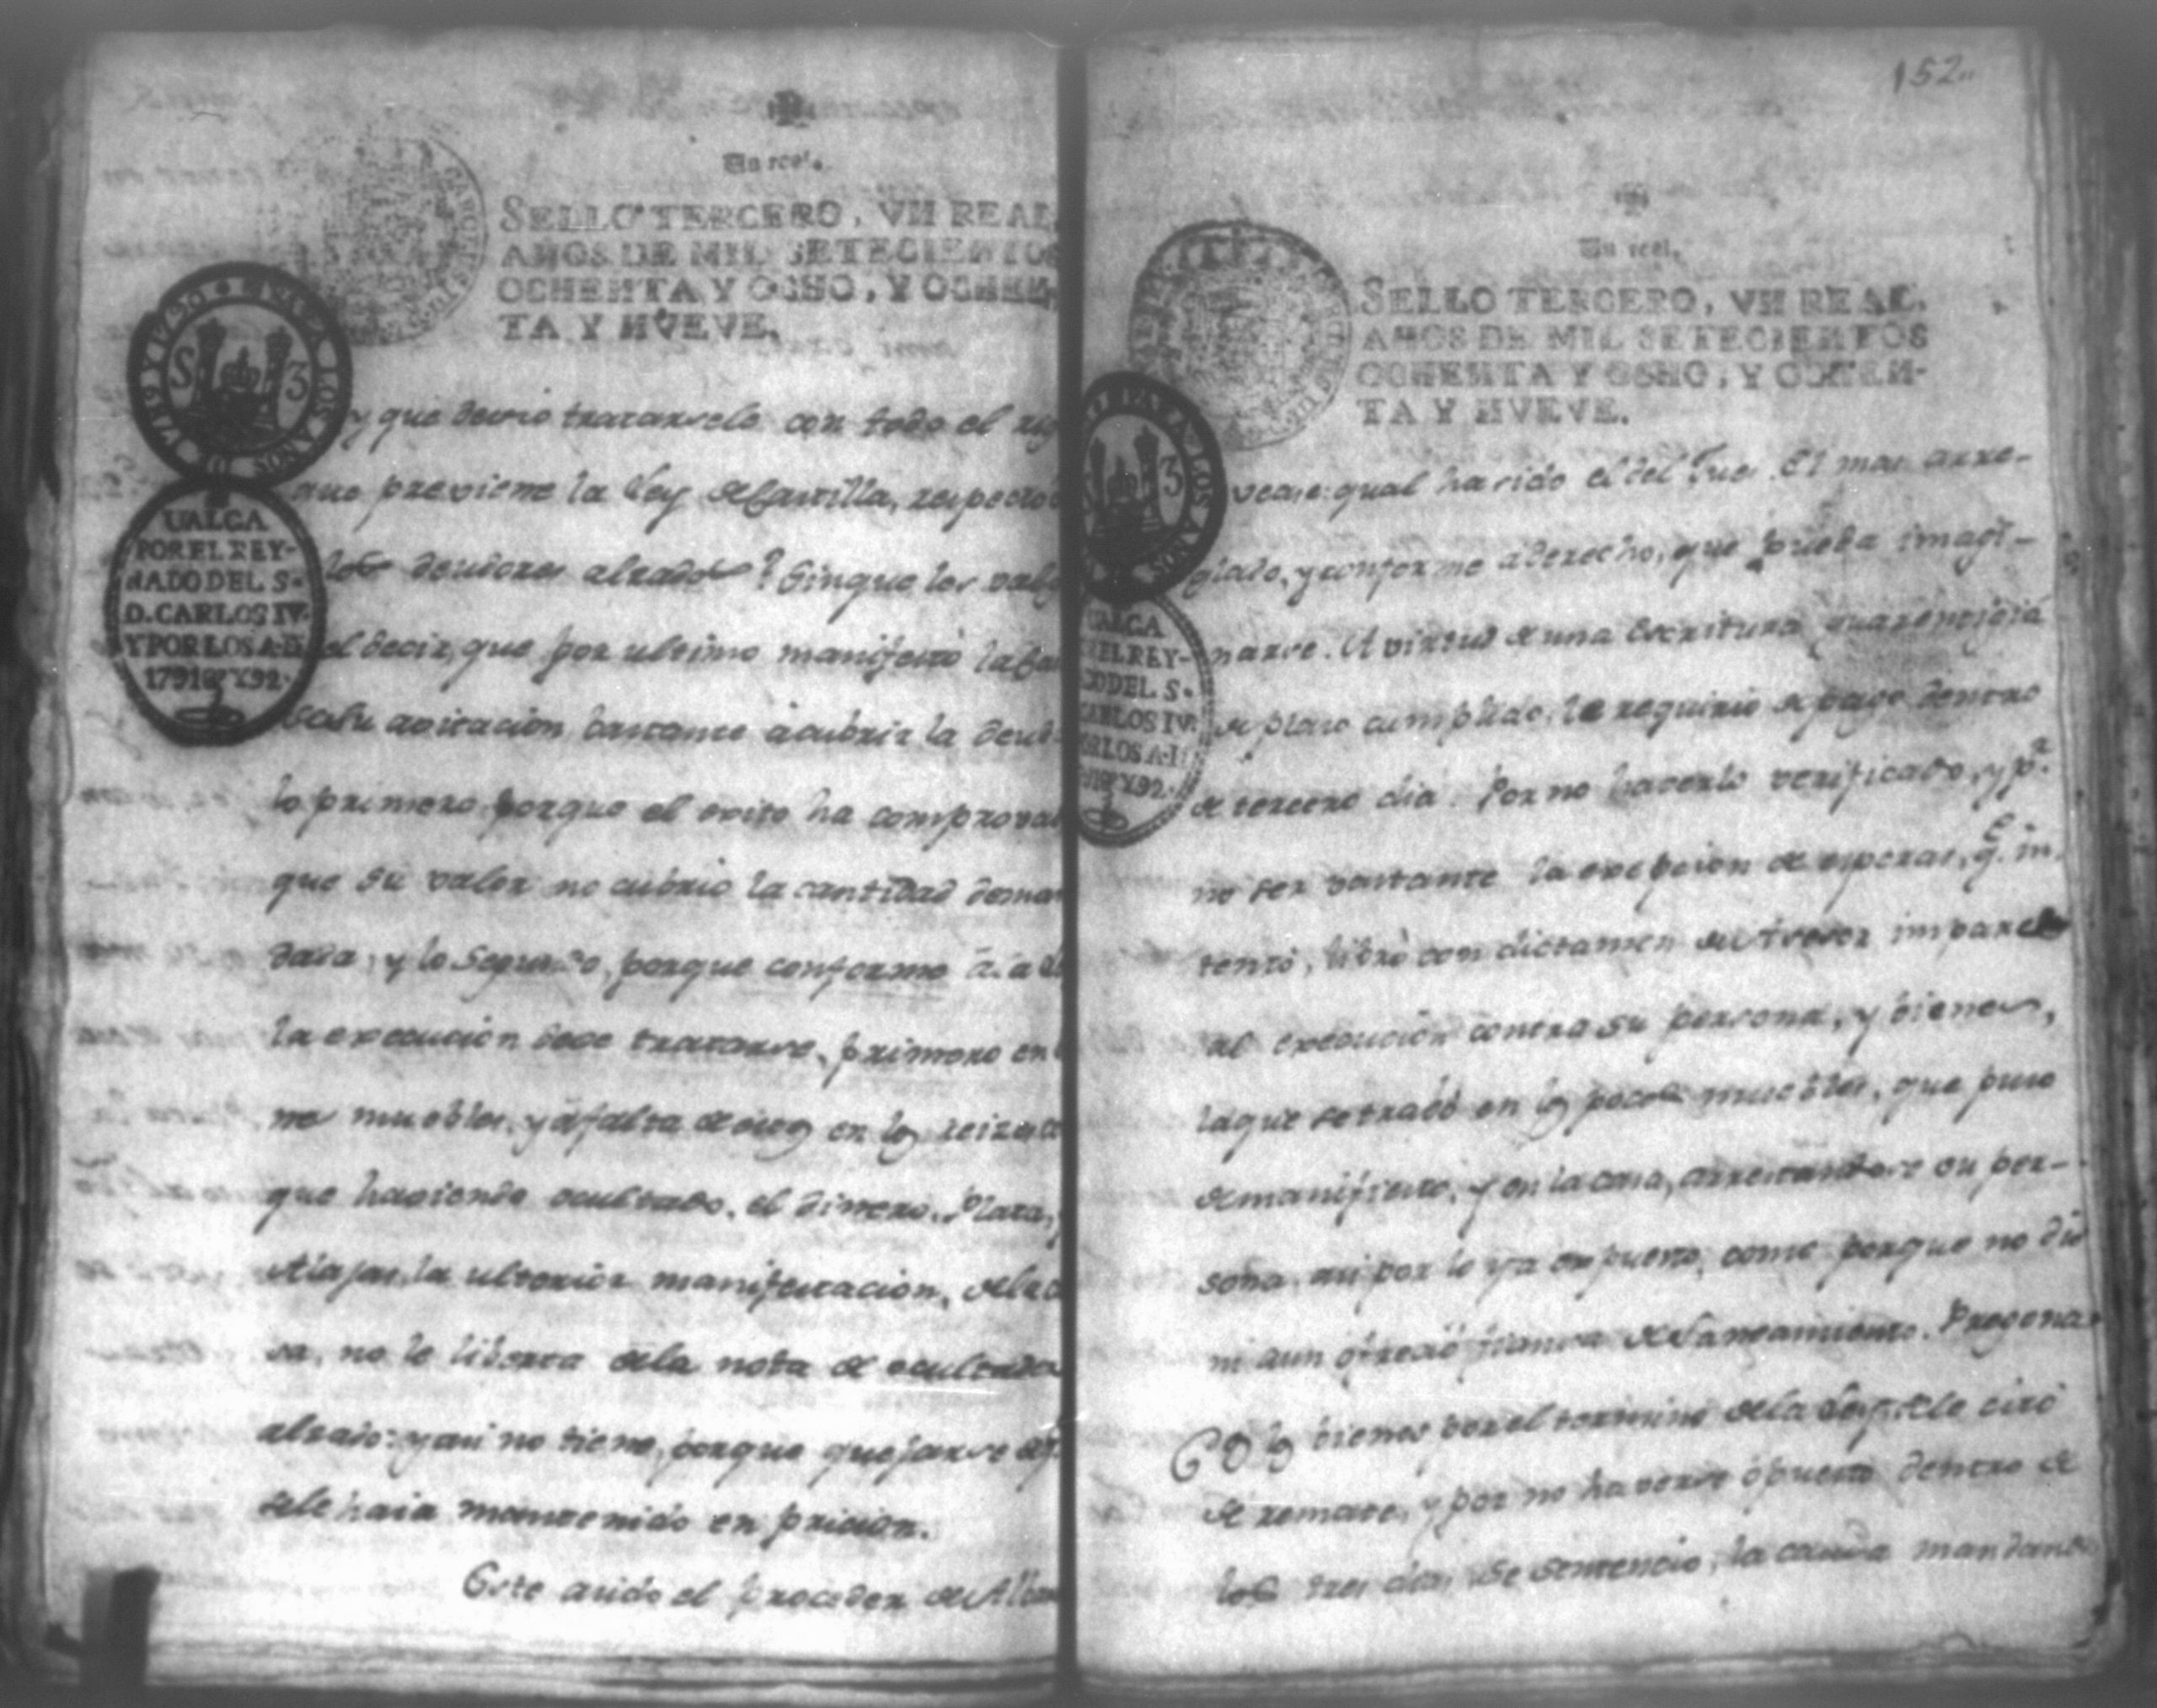 Un real.
SELLO TERCERO, VN REAL,
AÑOS DE MIL SETECIENTOS
OCHENTA Y OCHO, Y OCHEN-
TA Y NUEVE.
PARA LOS AÑOS DE 1789 Y 1790
S 3
UALGA
POR EL REY-
NADO DEL S.
D. CARLOS IV.
Y POR LOS A. D
1791 Y 92.
y que devio tratarsele con todo el rig
que previene la Ley de Castilla, respecto
los deudores alzados? Sin que les valga
el decir, que por ultimo manifestó la Ca
de su avitacion bastante à cubrir la deud
lo primero porque el exito ha comprovad
que su valor no cubrio la cantidad deman
dada, y lo Segundo, porque conforme
la execucion deve tratarse, primero en
muebles, y à falta de estos en los raizes
que haviendo ocultado, el dinero, Plata,
Alajas, la ulterior manifestacion, de la ca
sa, no le liberta de la nota de ocultador
alzado: y asi no tiene, porque quejarse de q.
se le haia mantenido en pricion.
Este a sido el proceder de
152
Un real.
SELLO TERCERO, VN REAL,
AÑOS DE MIL SETECIENTOS
OCHENTA Y OCHO, Y OCHEN-
TA Y NUEVE.
PARA LOS AÑOS
3
UALGA
EL REY-
DO DEL S.
CARLOS IV.
POR LOS A. D
Y 92.
vease qual ha sido el del Jues. El mas arre-
glado, y conforme a derecho, que pueda imagi-
narse. A virtud de una Escritura guarentigia
de plaso cumplido, le requirio de pago dentro
de tercero dia. Por no haverlo verificado, y p.a
no ser vastante la excepcion de esperas, q.e in-
tentó, libró con dictamen de Acesor imparci-
al execucion contra su persona, y bienes,
la que se trabó en los pocos muebles, que puso
de manifiesto, y en la casa, arrestandose su per-
sona, asi por lo ya expuesto, como porque no dio
ni aun ofreció fianza de Saneamiento. Pregona-
los bienes por el termino de la Ley, se le citó
de remate, y por no haverse opuesto dentro de
los tres dias, se sentenció, la causa mandando